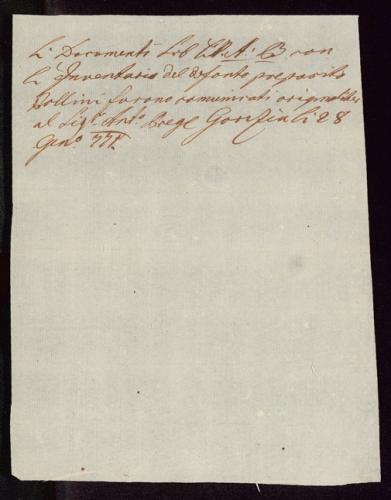 Li Documenti sub Lit: A: B con
l'Inventario del defonto preposito
Pollini furono comunicati originaliter
al Sigr. Antº. Gorizia li 28
Genº 77